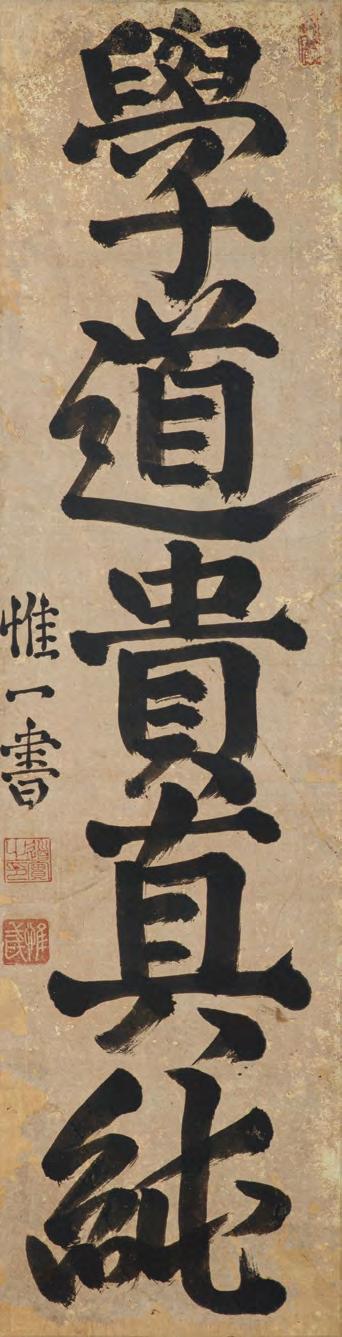 學道貴真純
惟一書